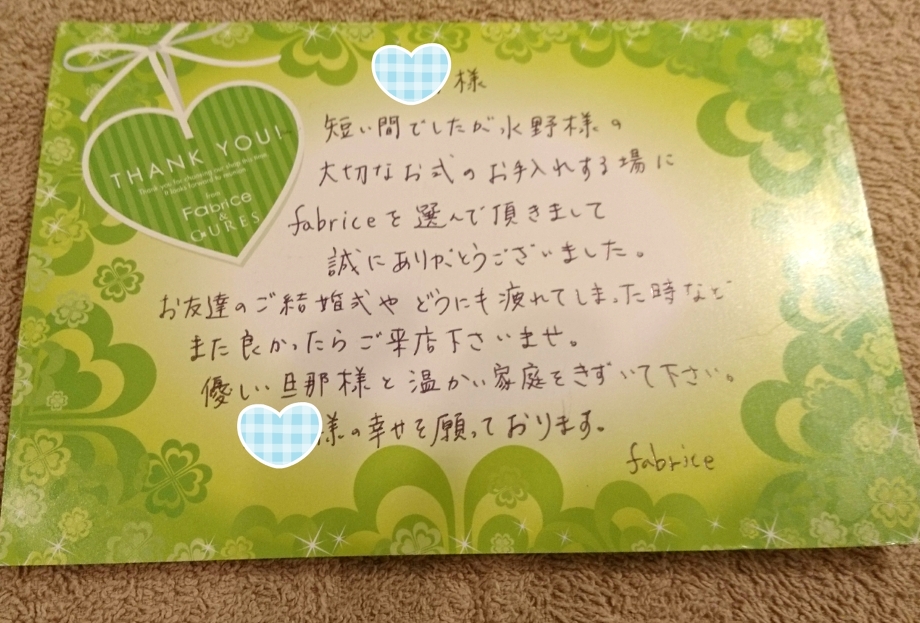 THANK YOU!
Thank you for choosing our shop this time.
from
Fabrice
&
CURES
様
短い間でしたが水野様の
大切なお式のお手入れする場に
fabriceを選んで頂きまして
誠にありがとうございました。
お友達のご結婚式や どうにも疲れてしまった時など
また良かったらご来店下さいませ。
優しい旦那様と温かい家庭をきずいて下さい。
様の幸せを願っております。
fabrice